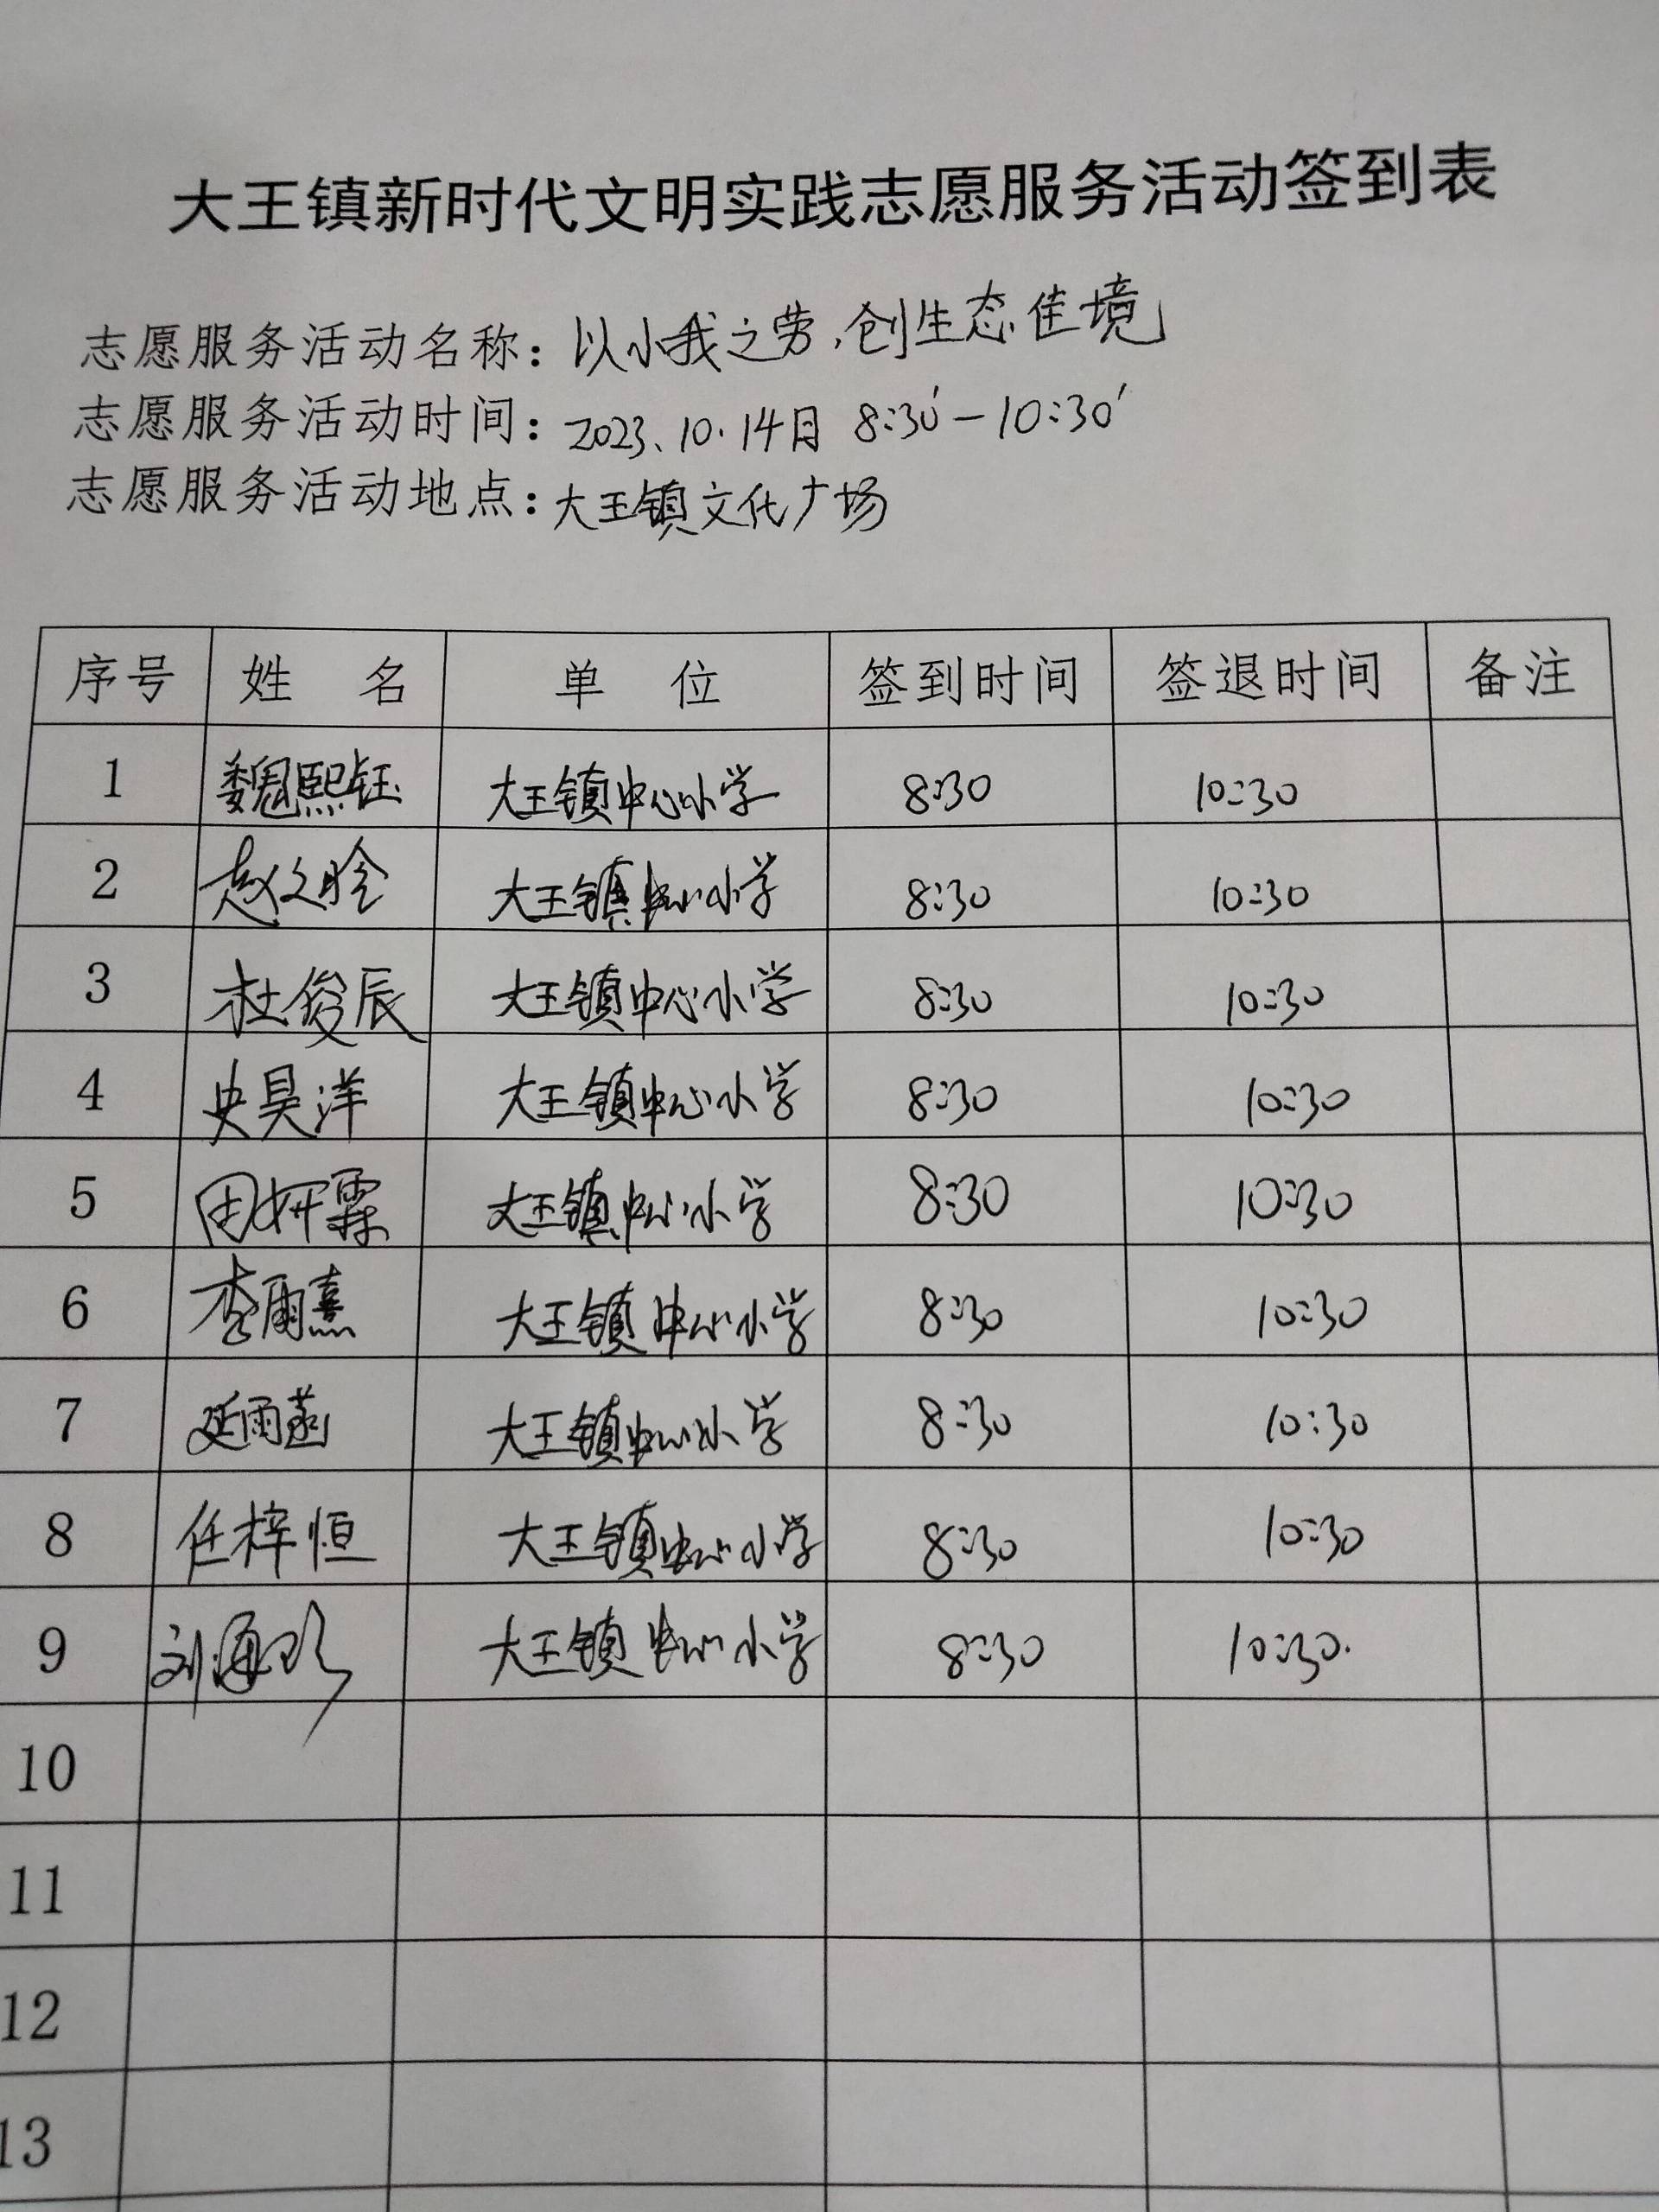 大王镇新时代文明实践志愿服务活动签到表
志愿服务活动名称：以小我之劳,创生态佳境
志愿服务活动时间：2023.10.14日 8:30′—10:30′
志愿服务活动地点：大王镇文化广场
序号 姓 名 单 位 签到时间 签退时间 备注
1 魏熙钰 大王镇中心小学 8:30 10:30
2 赵文晗 大王镇中心小学 8:30 10:30
3 杜俊辰 大王镇中心小学 8:30 10:30
4 史昊洋 大王镇中心小学 8:30 10:30
5 田妍霖 大王镇中心小学 8:30 10:30
6 李雨熹 大王镇中心小学 8:30 10:30
7 延雨菡 大王镇中心小学 8:30 10:30
8 任梓恒 大王镇中心小学 8:30 10:30
9 刘海 大王镇中心小学 8:30 10:30.
10
11
12
13